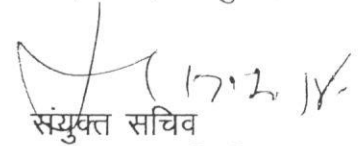 17.2.14.
संयुक्त सचिव